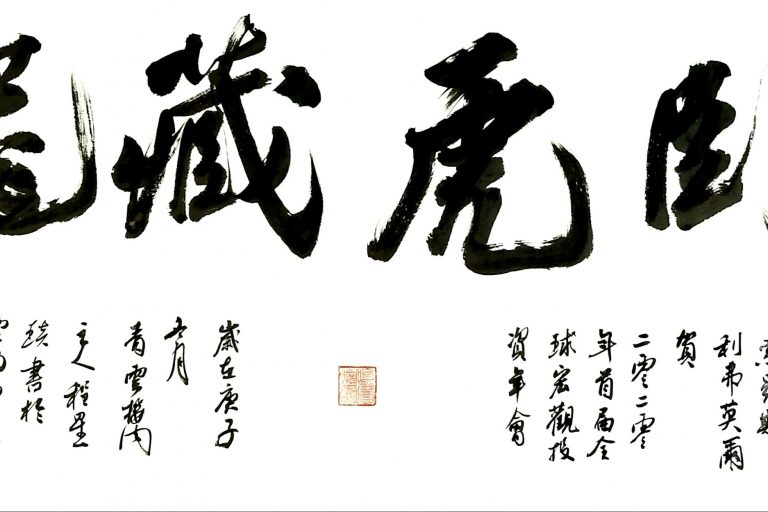 臥虎藏龍
利弗莫爾
賀
二零二零
年首届全
球宏觀投
資年會
歲在庚子
五月
青雲樓内
主人程星
書於